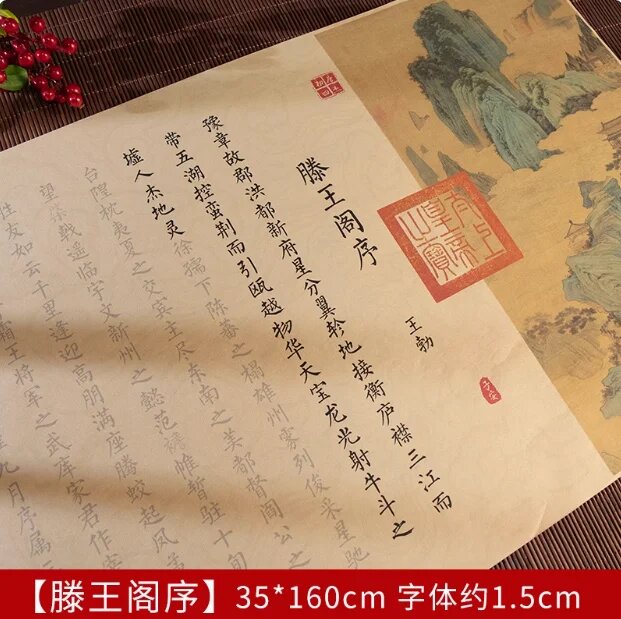 滕王阁序
王勃
子安
豫章故郡洪都新府星分翼轸地接衡庐襟三江而
带五湖控蛮荆而引瓯越物华天宝龙光射牛斗之
墟人杰地灵徐孺下陈蕃之榻雄州雾列俊采星驰
台隍枕夷夏之交宾主尽东南之美都督阎公之
望棨戟遥临宇文新州之懿范襜帷暂驻十旬
胜友如云千里逢迎高朋满座腾蛟起凤
霜王将军之武库家君作宰
九月序属
【滕王阁序】35*160cm 字体约1.5cm